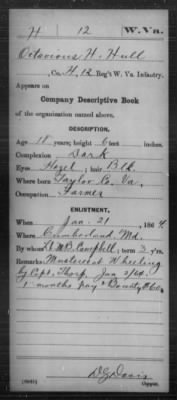 H 12 W. Va.
Octavious H. Hull
, Co. H, 12 Reg't W. Va. Infantry.
Appears on
Company Descriptive Book
of the organization named above.
DESCRIPTION.
Age 18 years; height 6 feet inches.
Complexion Dark
Eyes Hazel; hair Blk.
Where born Taylor Co. Va.
Occupation Farmer
ENLISTMENT.
When Jan. 21, 1864.
Where Cumberland, Md.
By whom Lt. M.B. Campbell; term 3 y'rs.
Remarks: Mustered Wheeling
by Capt. Thorp. Jan
1 months pay & Bounty $60.
D.G. Davis
Copyist.